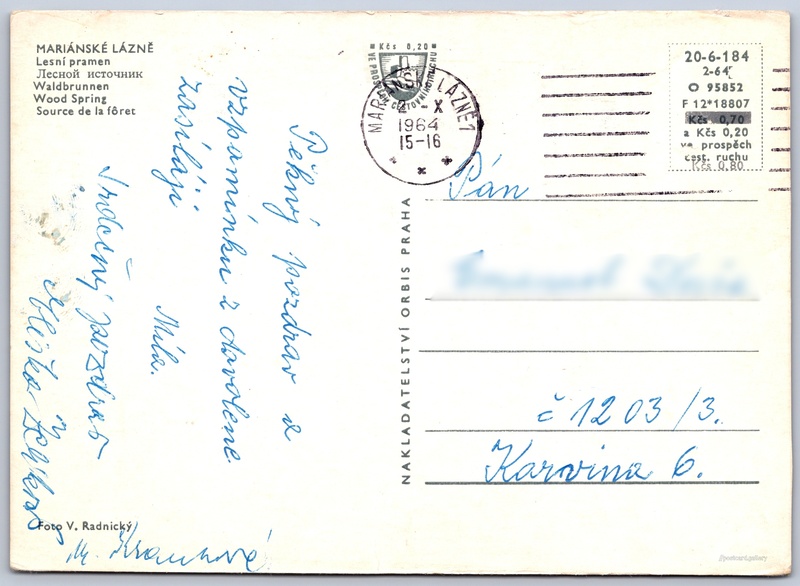 MARIÁNSKÉ LÁZNĚ
Lesní pramen
Лесной источник
Waldbrunnen
Wood Spring
Source de la fôret
Pěkný pozdrav a
vzpomínku z dovolené
zasílají
Míla.
Srdečný pozdrav
Foto V. Radnický
NAKLADATELSTVÍ ORBIS PRAHA
Kčs 0,20
VE PROSPĚCH CESTOVNÍHO RUCHU
MARIÁNSKÉ LÁZNĚ 1
2.-X
1964
15-16
20-6-184
2-64
O 95852
F 12*18807
Kčs 0,70
a Kčs 0,20
ve prospěch
cest. ruchu
Kčs 0.80
Pán
č 1203/3.
Karvina 6.